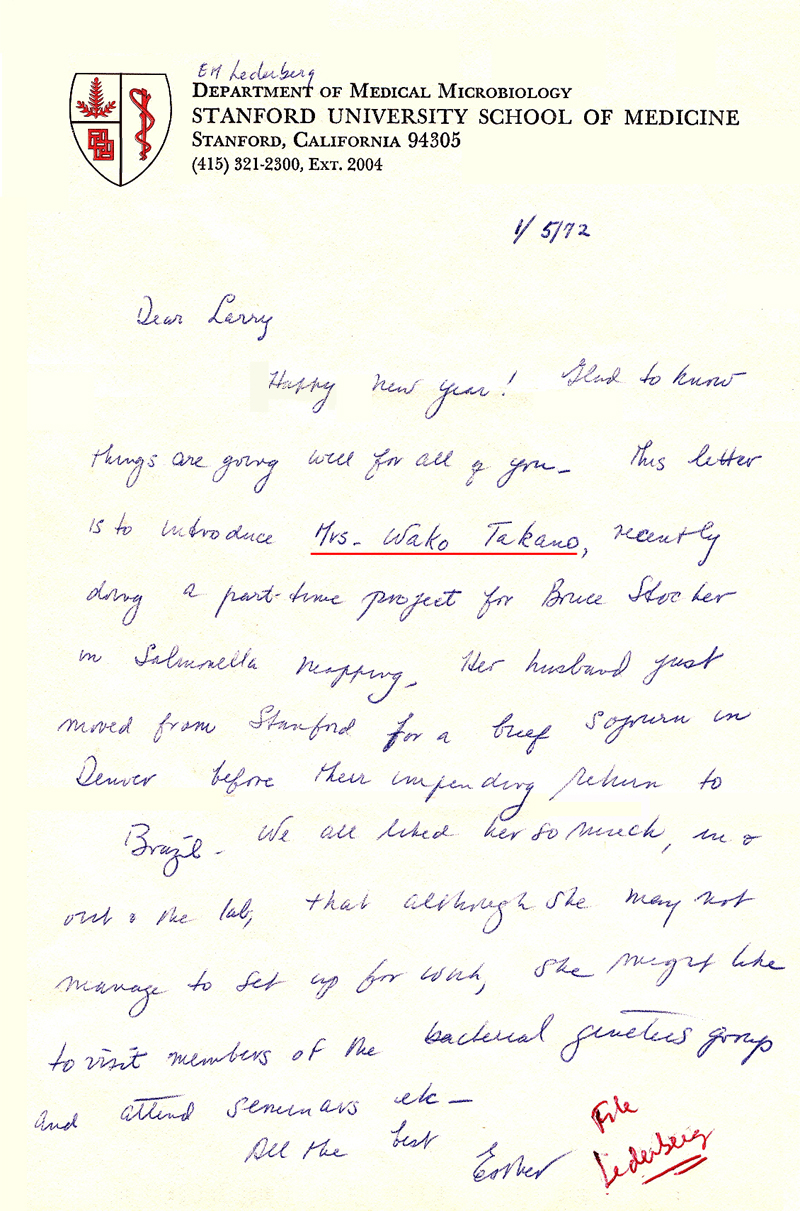 EM Lederberg
DEPARTMENT OF MEDICAL MICROBIOLOGY
STANFORD UNIVERSITY SCHOOL OF MEDICINE
STANFORD, CALIFORNIA 94305
(415) 321-2300, EXT. 2004
1/5/72
Dear Larry
Happy new year! Glad to know
things are going well for all of you - This letter
is to introduce Mrs. Wako Takano, recently
doing a part-time project for Bruce Stocker
in Salmonella mapping. Her husband just
moved from Stanford for a brief sojourn in
Denver before their impending return to
Brazil - We all liked her so much, in &
out o the lab, that although she may not
manage to set up for work, she might like
to visit members of the bacterial genetics group
and attend seminars etc -
All the best
Esther
File
Lederberg